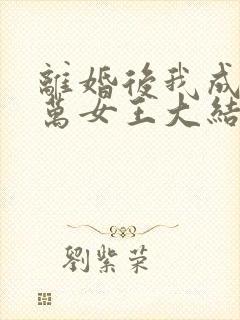 離婚後我成
萬女王大結
劉紫荣